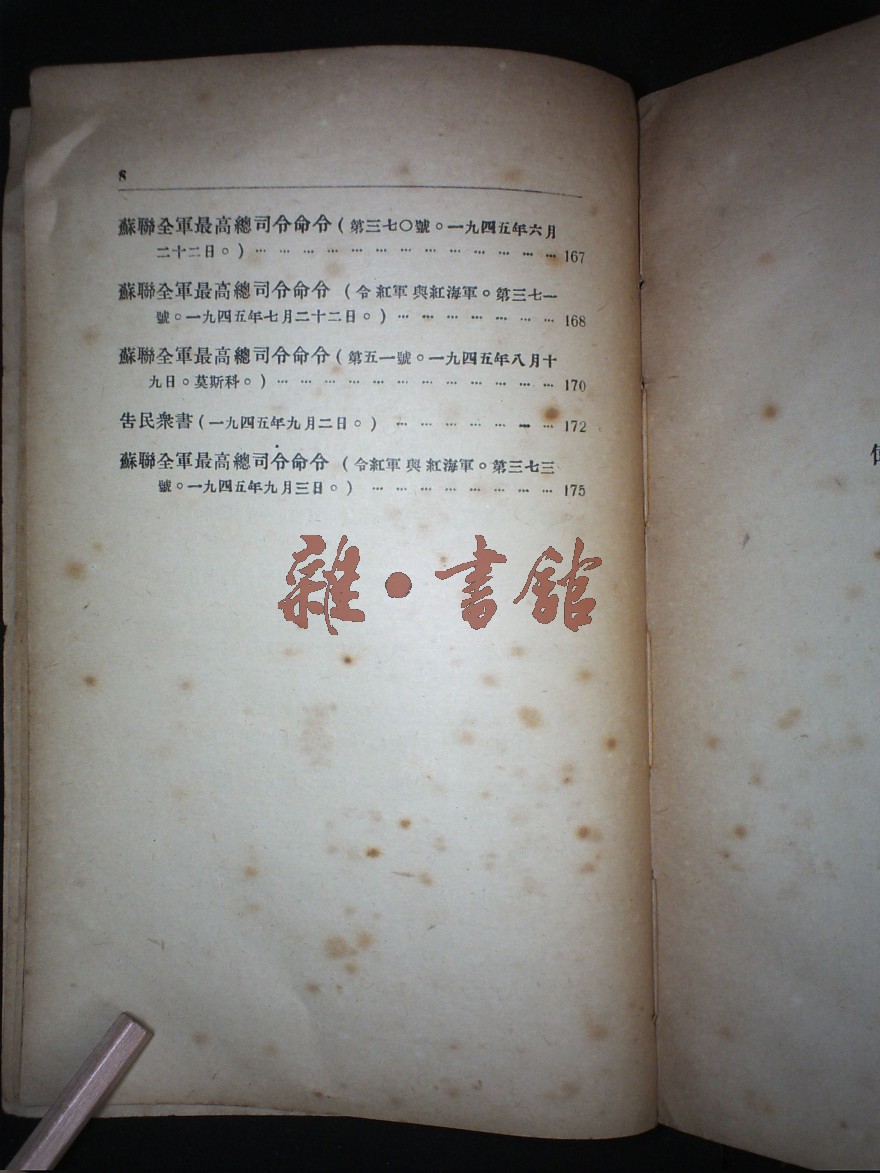 8
蘇聯全軍最高總司令命令(第三七〇號。一九四五年六月
二十二日。) … … … … … … … … … … … … … 167
蘇聯全軍最高總司令命令 (令紅軍與紅海軍。第三七一
號。一九四五年七月二十二日。) … … … … … … … 168
蘇聯全軍最高總司令命令(第五一號。一九四五年八月十
九日。莫斯科。) … … … … … … … … … … … … 170
告民衆書(一九四五年九月二日。) … … … … … … … 172
蘇聯全軍最高總司令命令 (令紅軍與紅海軍。第三七三
號。一九四五年九月三日。) … … … … … … … … 175
雜•書館